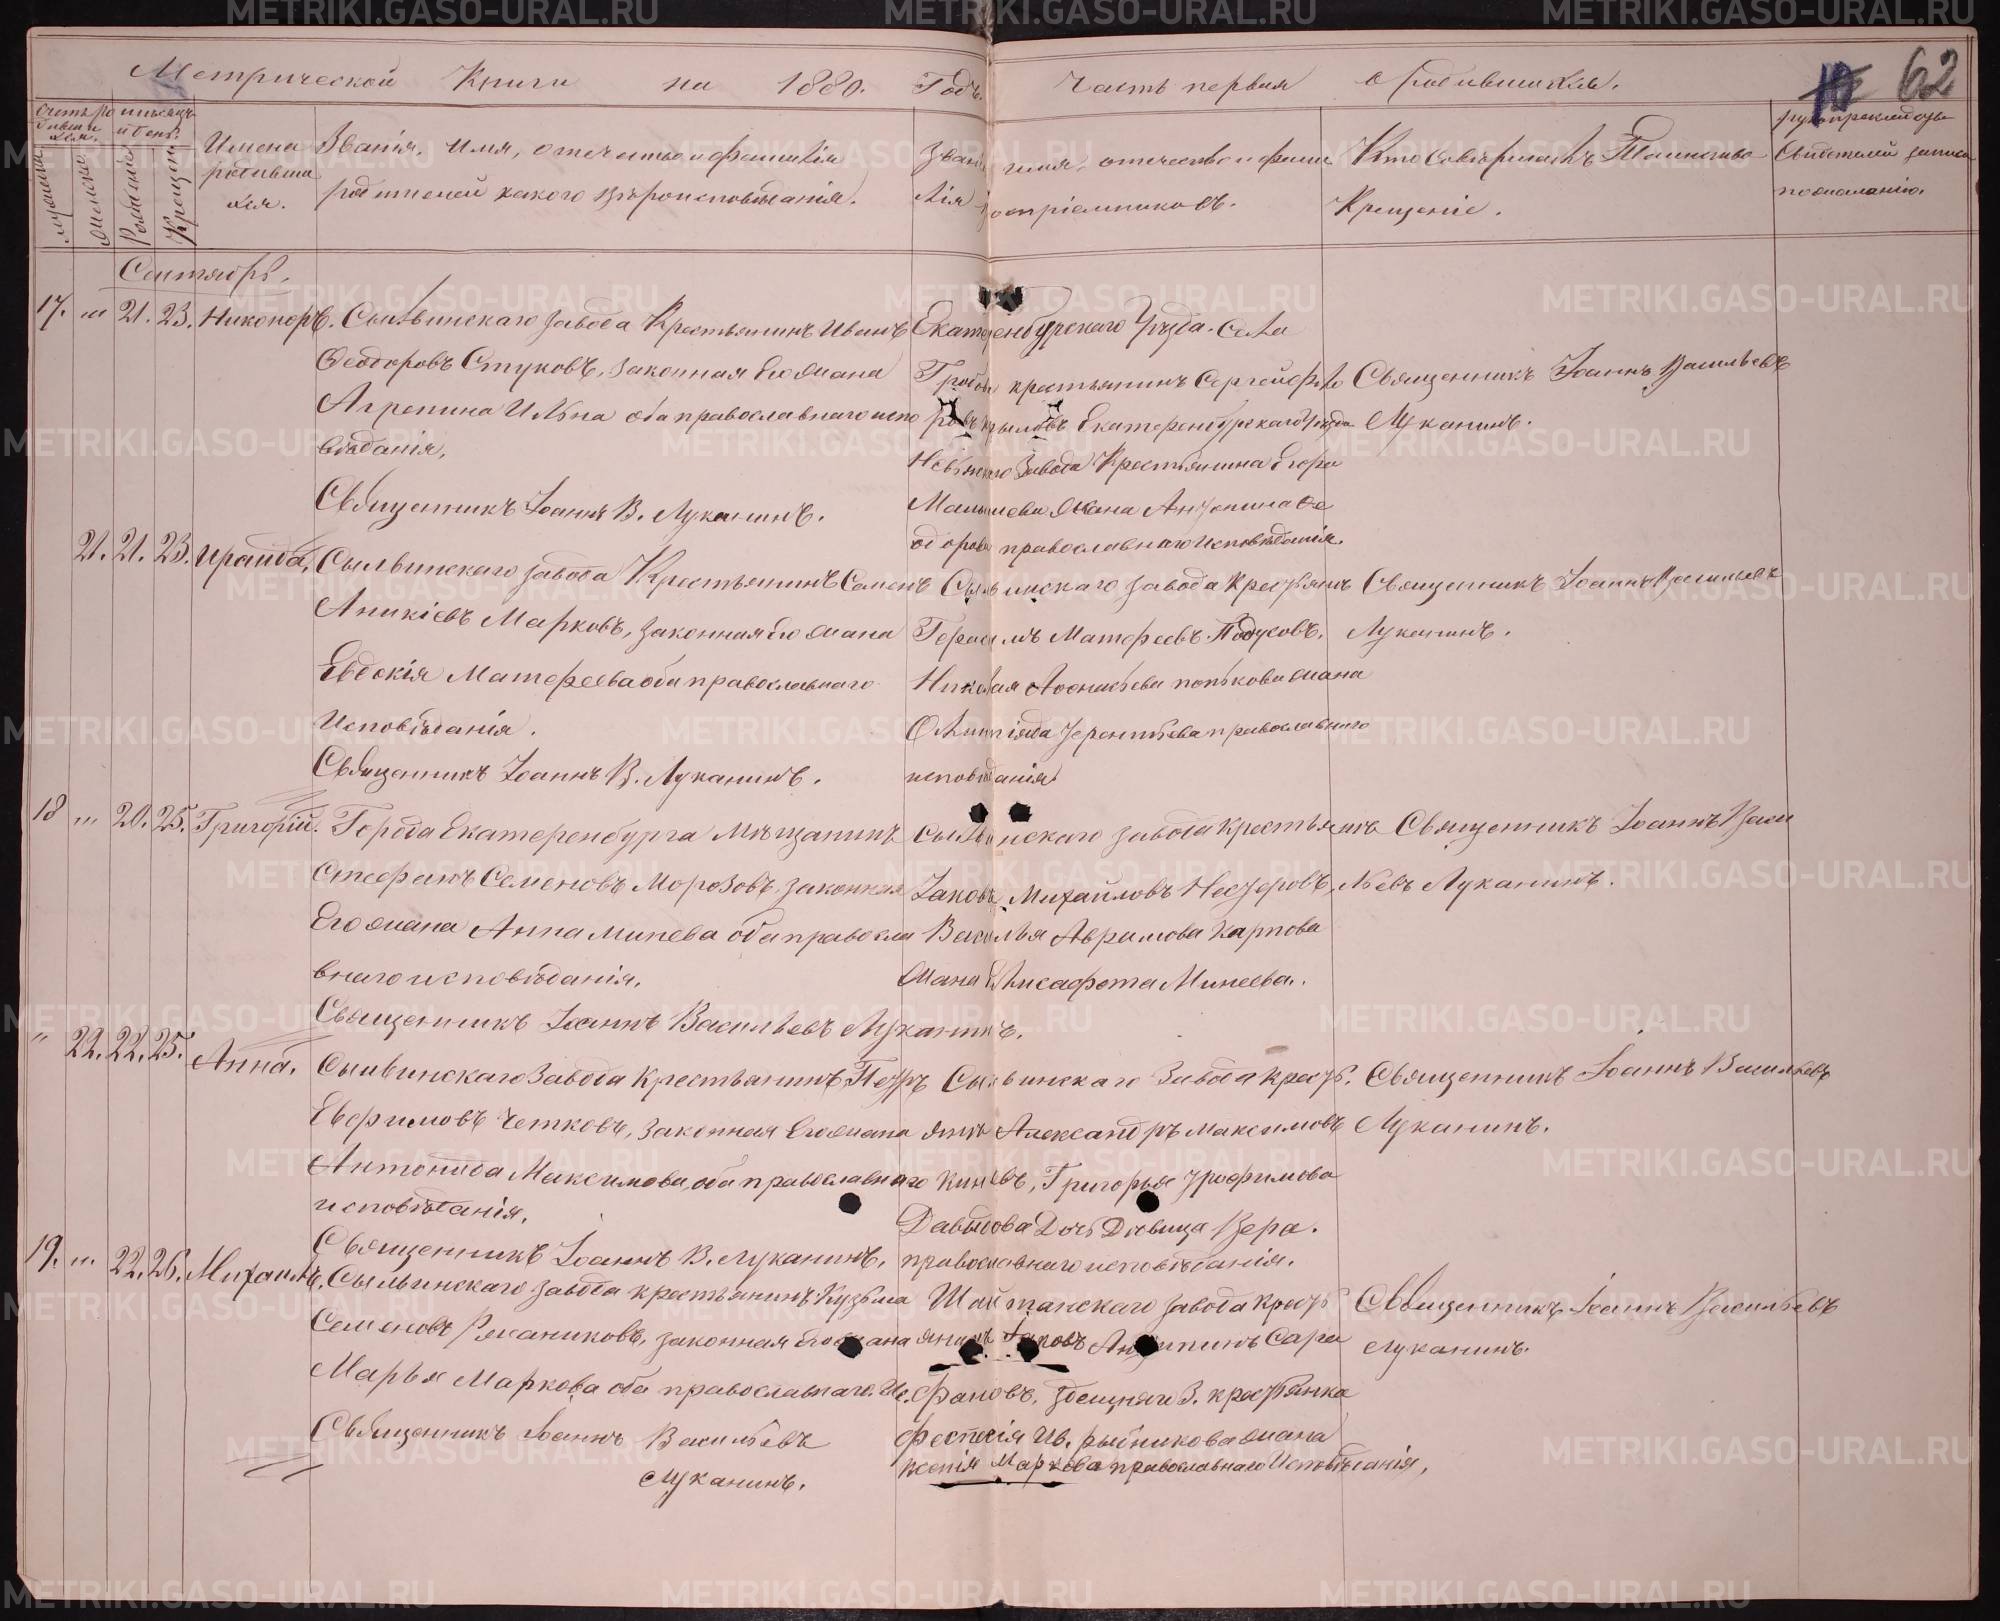 Метрической Книги на 1880. Годъ. Часть первая о родившихся.
62
Счетъ родившихся.
мужеска
женска
Рожденія
Крещенія
Имена родившихся.
Званія, имя, отечество и фамилія
родителей какого вѣроисповѣданія.
Званіе имя, отечество и фамилія
воспріемниковъ.
Кто совершилъ Таинство
Крещенія.
Свидетелей записи
по желанію.
Сентябрь.
17. " 21. 23. Никоноръ.
Сылвинскаго завода Крестьянинъ Иванъ
Феодоровъ Стуковъ, законная Его жена
Агрепина Ильина оба православнаго испо
вѣданія.
Священникъ Іоаннъ В. Луканинъ.
Екатеренбурскаго Уезда. Села
крестьянинъ Сергей
Крыловъ Екатеренбурскаго Уезда
Невьянскаго Завода Крестьянина Егора
Малышева жена Антонина Фе
одорова православнаго исповѣданія.
Священникъ Іоаннъ Васильевъ
Луканинъ.
21. 21. 23. Ираида,
Сылвинскаго завода Крестьянинъ Семенъ
Аникіевъ Марковъ, законная Его жена
Евдокія Матфеева оба православнаго
Исповѣданія.
Священникъ Іоаннъ В. Луканинъ.
Сылвинскаго завода Крестьянинъ
Герасимъ Матфеевъ
Николая жена
Олимпіяда Терентьева православнаго
исповѣданія
Священникъ Іоаннъ Васильевъ
Луканинъ.
18 " 20. 25. Григорій.
Города Екатеренбурга Мѣщанинъ
Стефанъ Семеновъ Морозовъ, законная
Его жена Анна Минева оба правосла
внаго исповѣданія.
Священникъ Іоаннъ Васильевъ Луканинъ.
Сылвинскаго завода крестьянинъ
Іаковъ Михайловъ Нестеровъ,
Василья Аврамова Карпова
жена Елисафета Минеева.
Священникъ Іоаннъ Васи
льевъ Луканинъ.
" 22. 22. 25. Анна.
Сылвинскаго Завода крестьянинъ Петръ
Евфимовъ Четковъ, законная Его жена
Антонида Максимова, оба православнаго
исповѣданія.
Священникъ Іоаннъ В. Луканинъ.
Сылвинскаго Завода крест.
янинъ Александръ Максимовъ
Григорья Трофимова
Давыдова Дочь Дѣвица Вера.
православнаго исповѣданія.
Священникъ Іоаннъ Васильевъ
Луканинъ.
19. " 22. 26. Михаилъ,
Сылвинскаго завода крестьянинъ Кузьма
Семеновъ законная Его жена
Марья Маркова оба православнаго. Ис.
Священникъ Іоаннъ Васильевъ
Луканинъ.
Шайтанскаго завода Крест
янинъ Іаковъ Антипинъ Сара
фановъ, здешняго З. крестьянка
Ив. жена
Маркова православнаго Исповѣданія,
Священникъ Іоаннъ Васильевъ
Луканинъ.
METRIKI.GASO-URAL.RU